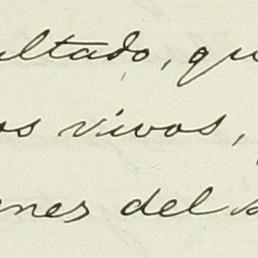 ultado, qu
os vivos,
enes del s